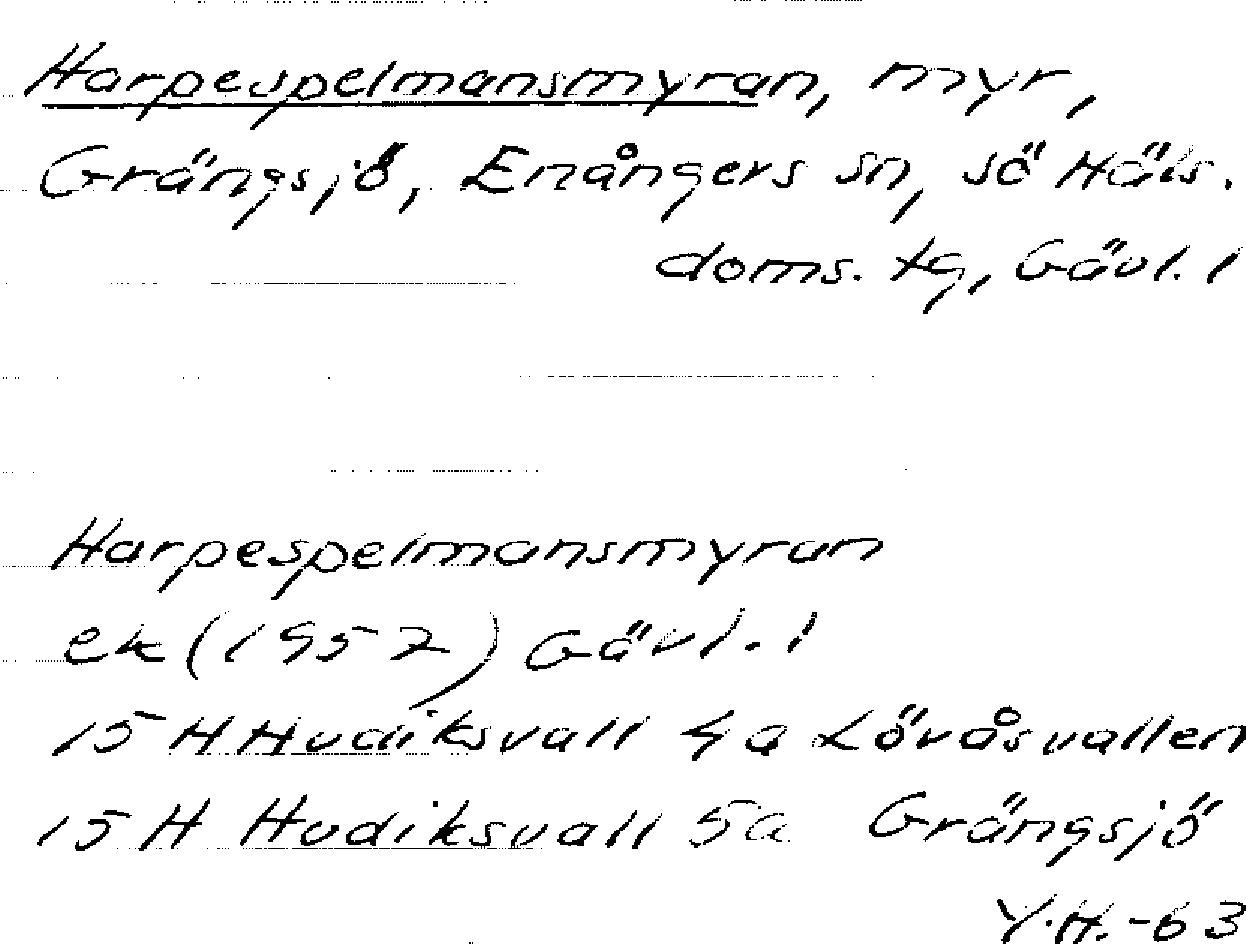 Harpespelmansmyran, myr,
Grängsjö, Enångers sn, sö Häls.
doms. tg, Gävl. l
Harpespelmansmyran
ek (1957) Gävl. l
15 H Hudiksvall 4a Lövåsvallen
15 H Hudiksvall 5a Grängsjö
Y.H.-63